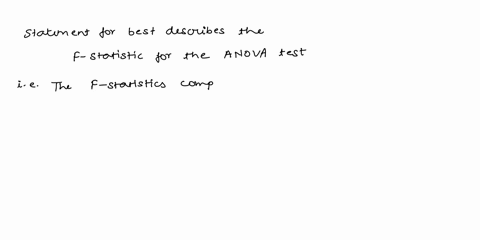 Statement for best describes the
F-statistic for the ANOVA test
i.e. The F-statistics comp